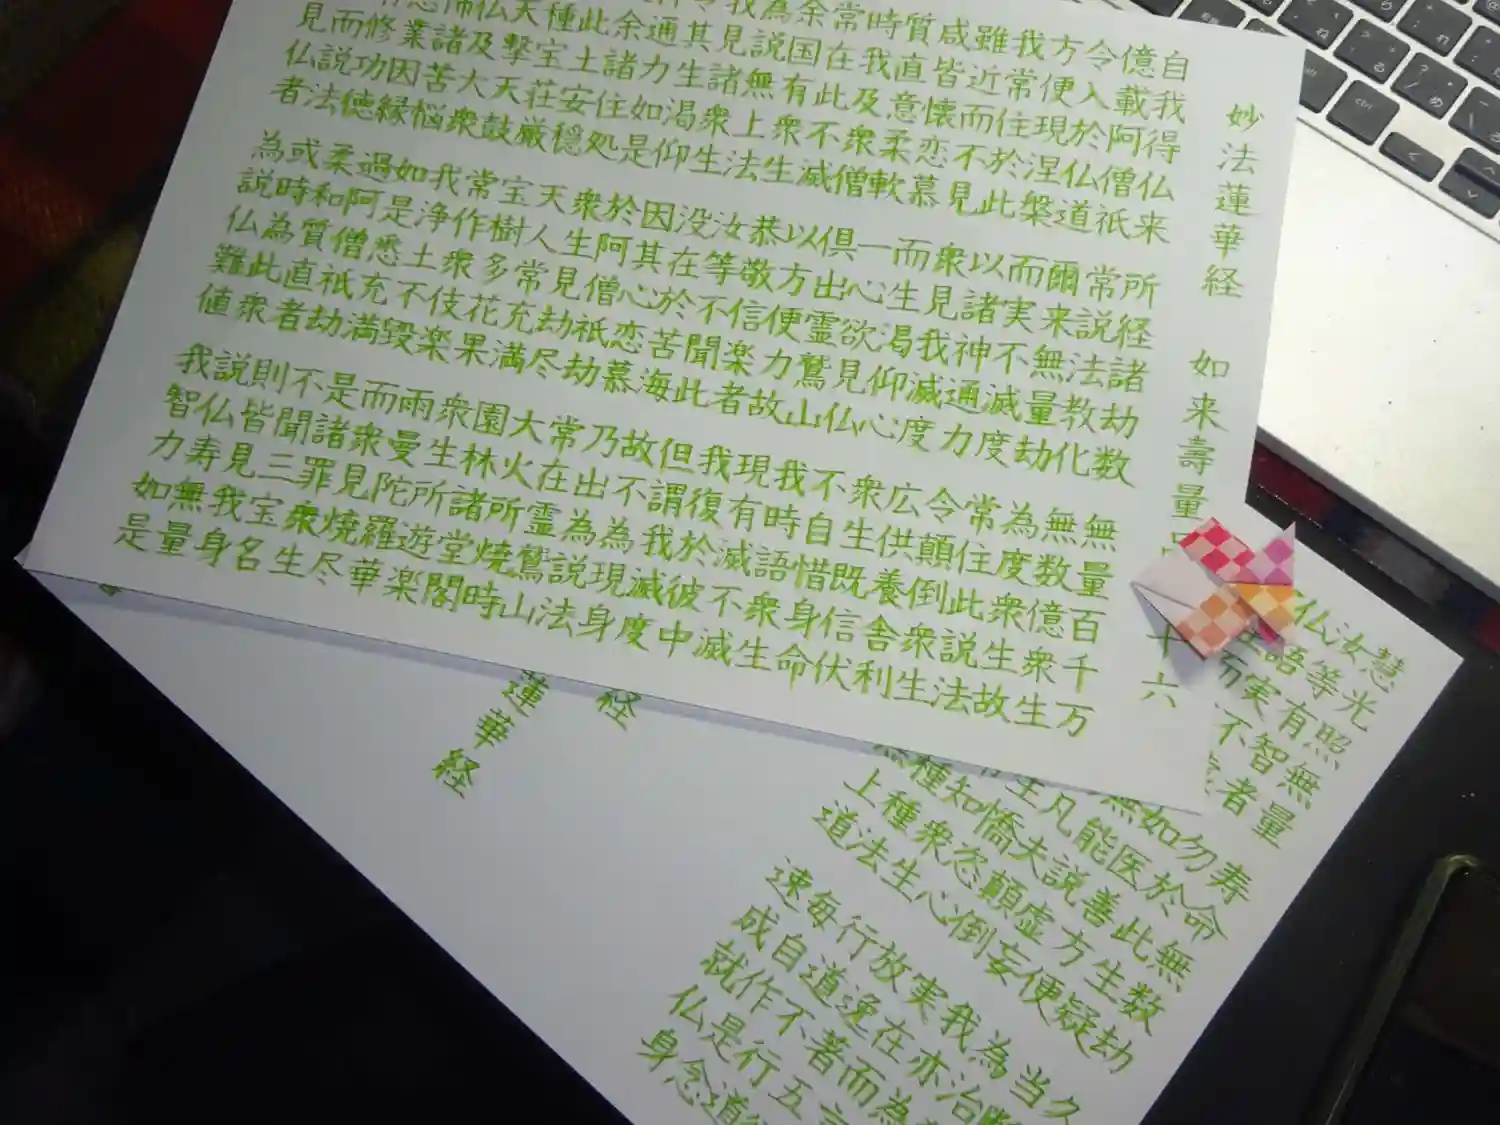 妙法蓮華経 如来壽量品 十六
自我得仏来 所経諸劫数 無量百千万
億載阿僧祇 常説法教化 無数億衆生
令入於仏道 爾来無量劫 為度衆生故
方便現涅槃 而実不滅度 常住此説法
我常住於此 以諸神通力 令顛倒衆生
雖近而不見 衆見我滅度 広供養舎利
咸皆懐恋慕 而生渇仰心 衆生既信伏
質直意柔軟 一心欲見仏 不自惜身命
時我及衆僧 倶出霊鷲山 我時語衆生
常在此不滅 以方便力故 現有滅不滅
余国有衆生 恭敬信楽者 我復於彼中
為説無上法 汝等不聞此 但謂我滅度
我見諸衆生 没在於苦海 故不為現身
其生渇仰 因其心恋慕 乃出為説法
通力如是 於阿僧祇劫 常在霊鷲山
余諸住処 衆生見劫尽 大火所焼時
此土安穏 天人常充満 園林諸堂閣
種宝荘厳 宝樹多花果 衆生所遊楽
天撃天鼓 常作衆伎楽 雨曼陀羅華
仏及大衆 我浄土不毀 而衆見焼尽
怖諸苦悩 如是悉充満 是諸罪衆生
悪業因縁 過阿僧祇劫 不聞三宝名
有修功徳 柔和質直者 則皆見我身
而説法 或時為此衆 説仏寿無量
見仏者 為説仏難値 我智力如是
慧光照無量 寿命無数劫 久
汝等有智者 勿於此生疑 当断
仏語実不 如医善方便 為治
而 無能説虚妄 我亦為
凡夫顛倒 実在而言
生憍恣心 放逸著五
知衆生 行道不行道
種種法 毎自作是念
無上道 速成就仏身
経
蓮華経